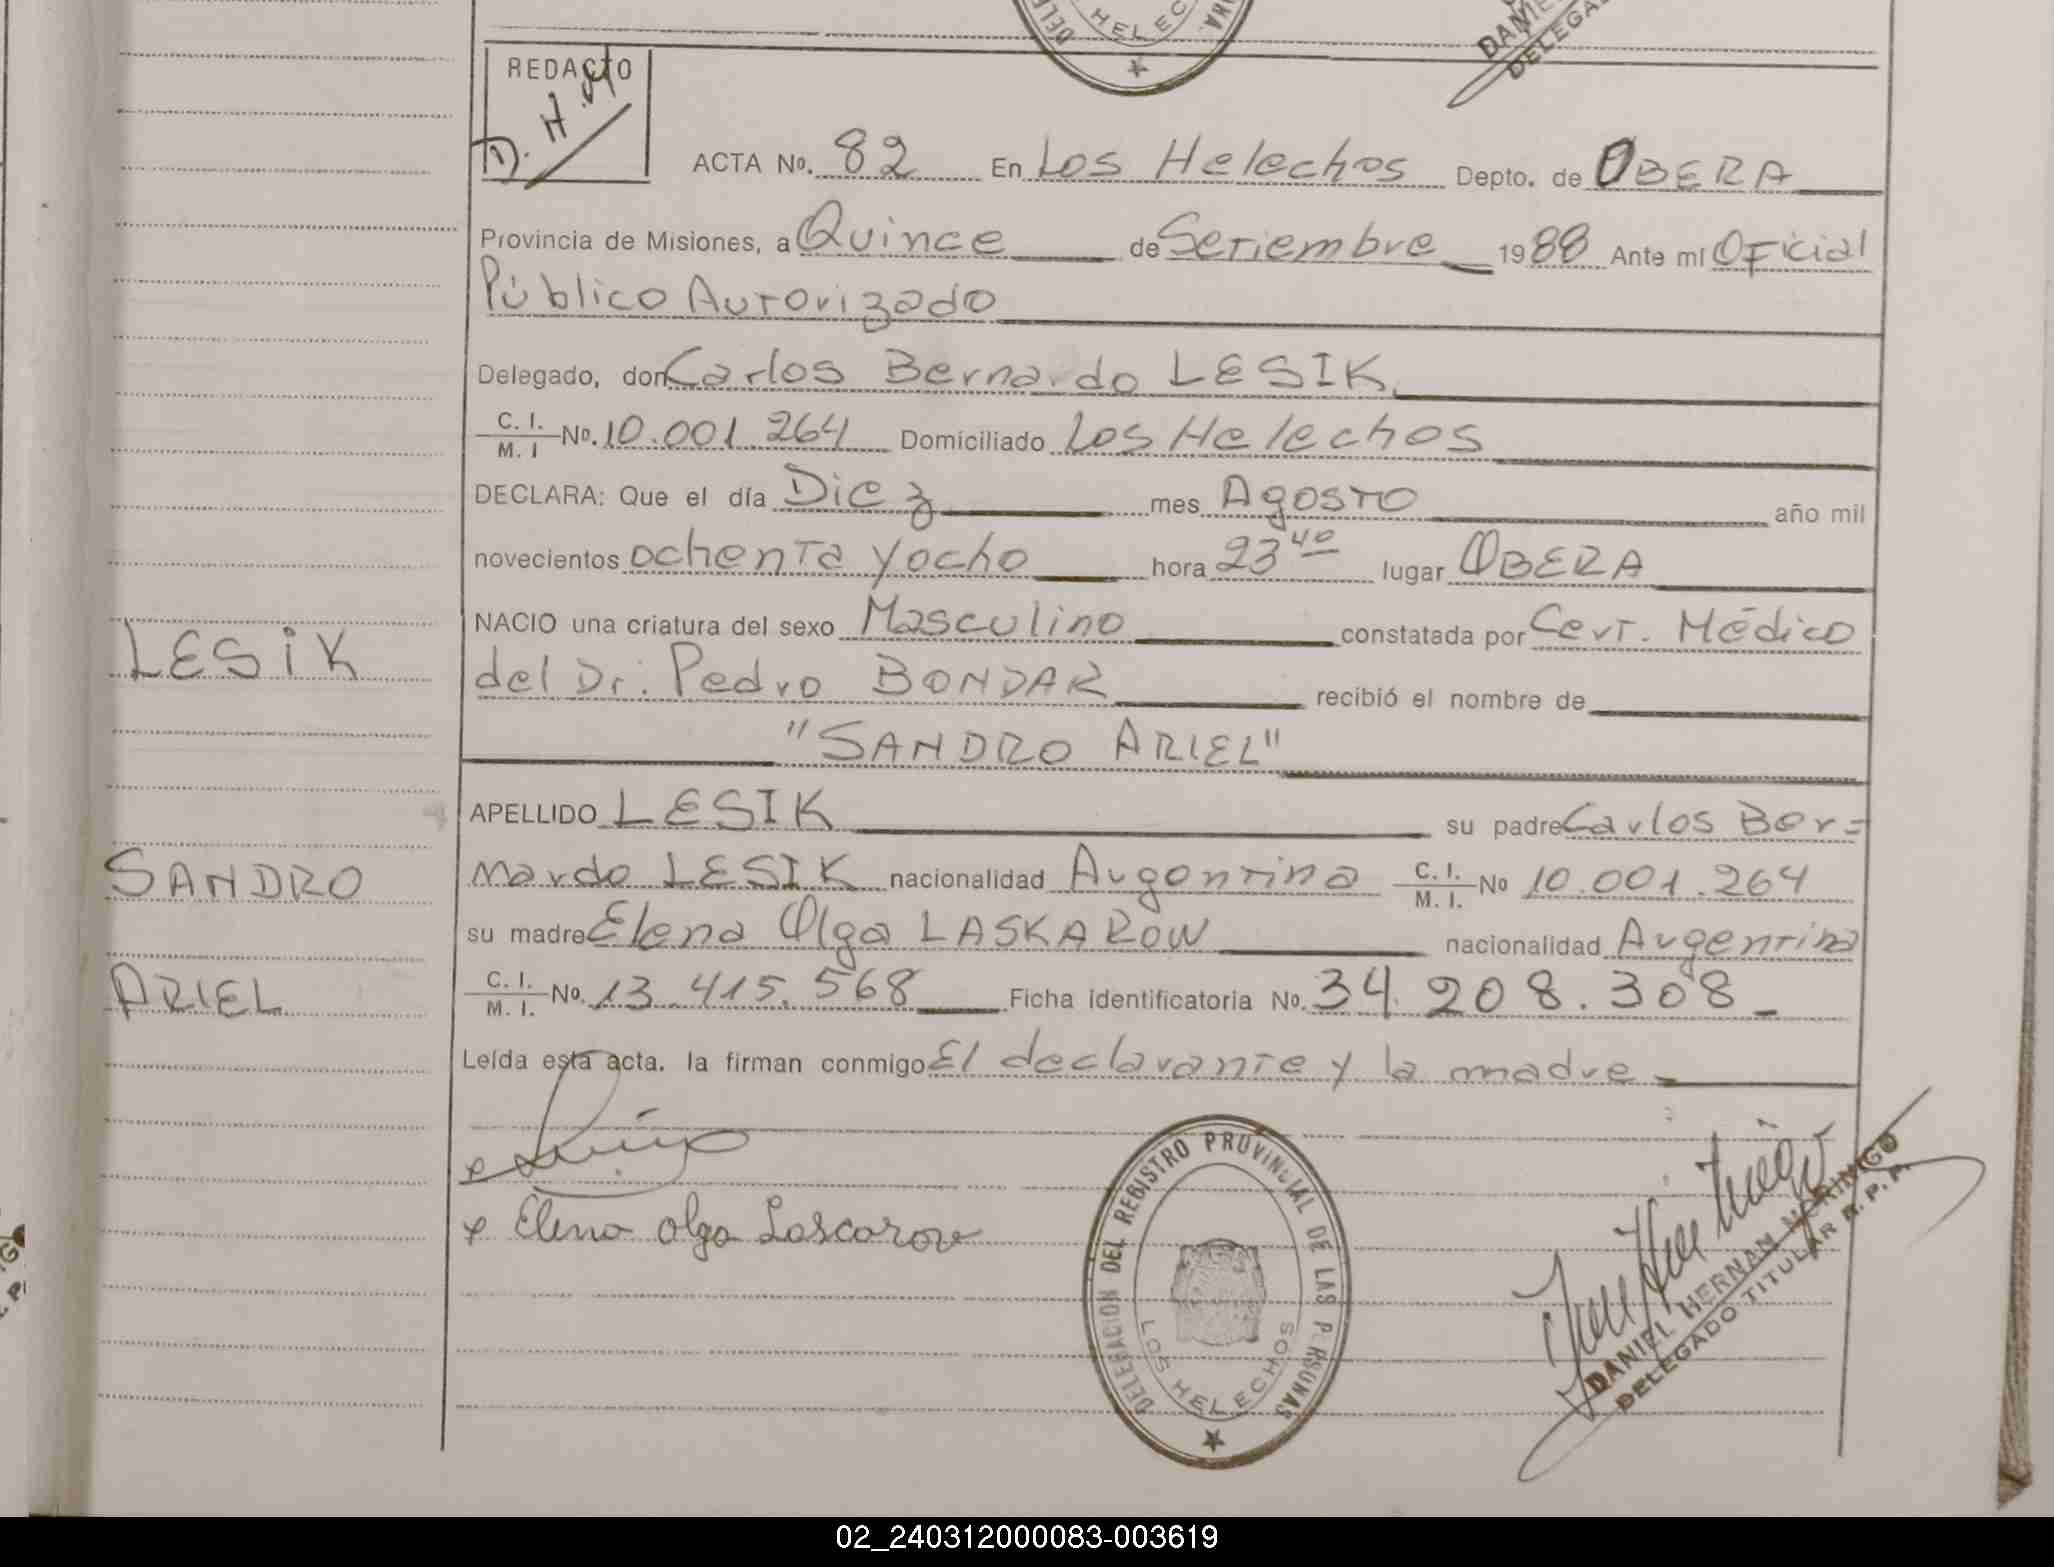 HELEC
DELE
REDACTO
D. H. M
ACTA No. 82 En Los Helechos Depto. de OBERA
Provincia de Misiones, a Quince de Setiembre 1988 Ante mí Oficial
Público Autorizado
Delegado, don Carlos Bernardo LESIK
C. I. M. I No. 10.001.264 Domiciliado Los Helechos
DECLARA: Que el día Diez mes Agosto año mil
novecientos ochenta y ocho hora 23 40 lugar OBERA
NACIO una criatura del sexo Masculino constatada por Cert. Médico
del Dr. Pedro BONDAR recibió el nombre de
"SANDRO ARIEL"
APELLIDO LESIK su padre Carlos Ber=
nardo LESIK nacionalidad Argentina C. I. M. I. No 10.001.264
su madre Elena Olga LASKAROW nacionalidad Argentina
C. I. M. I. No. 13.415.568 Ficha identificatoria No. 34.208.308
Leída esta acta. la firman conmigo El declarante y la madre
x Elena Olga Lascarow
LESIK
SANDRO
ARIEL
DELEGACION DEL REGISTRO PROVINCIAL DE LAS PERSONAS
LOS HELECHOS
DANIEL HERNAN MORINIGO
DELEGADO TITULAR R. P. P.
02_240312000083-003619